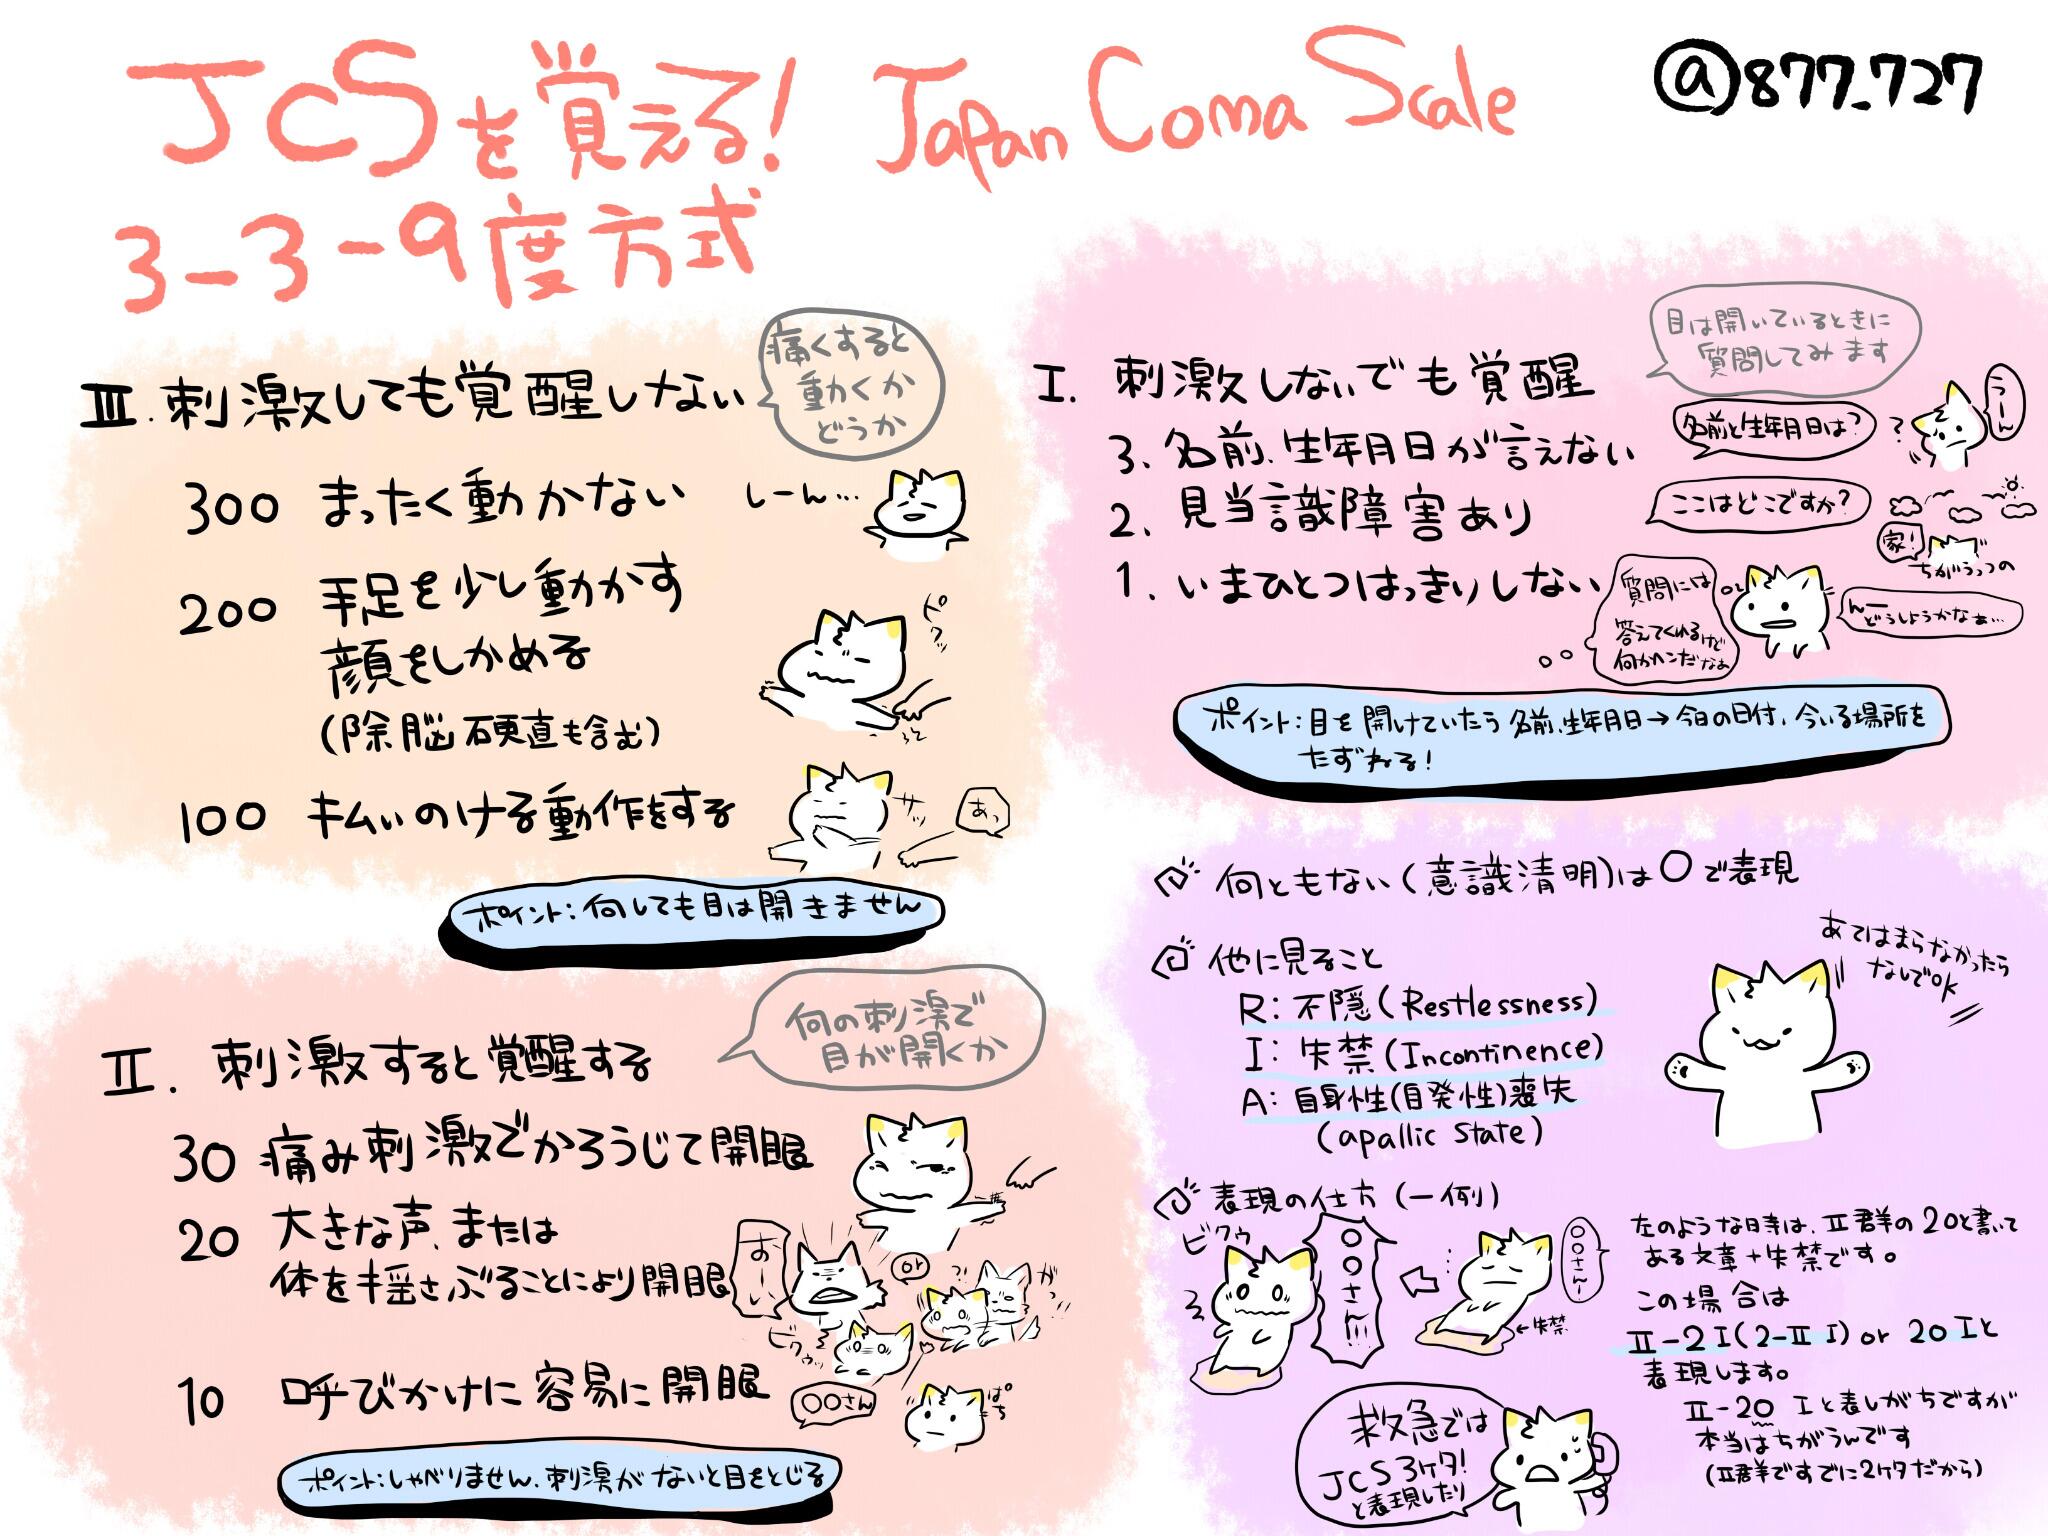 JCSを覚える! Japan Coma Scale
@877_727
3-3-9度方式
Ⅲ.刺激しても覚醒しない
痛くすると
動くか
どうか
300 まったく動かない
しーん…
200 手足を少し動かす
顔をしかめる
(除脳硬直も含む)
100 払いのける動作をする
サッ
あっ
ポイント:何しても目は開きません
Ⅱ. 刺激すると覚醒する
何の刺激で
目が開くか
30 痛み刺激でかろうじて開眼
20 大きな声、または
体を揺さぶることにより開眼
おーい
or
ビクゥッ
10 呼びかけに容易に開眼
○○さん
ぱち
ポイント:しゃべりません、刺激がないと目をとじる
Ⅰ. 刺激しないでも覚醒
目は開いているときに
質問してみます
3. 名前、生年月日が言えない
名前と生年月日は?
?
うーん
2. 見当識障害あり
ここはどこですか?
家!
ちがうっつの
1. いまひとつはっきりしない
質問には
答えてくれるけど
何かヘンだなぁ
んー
どうしようかなぁ…
ポイント:目を開けていたら名前、生年月日→今日の日付、今いる場所を
たずねる!
何ともない(意識清明)は0で表現
他に見ること
R:不隠(Restlessness)
I:失禁(Incontinence)
A:自身性(自発性)喪失
(apallic state)
あてはまらなかったら
なしでOK
表現の仕方(一例)
ビクゥ
○○さん!!!
○○さんー
←失禁
左のような時は、Ⅱ群の20と書いて
ある文章+失禁です。
この場合は
Ⅱ-2I(2-ⅡI) or 20Iと
表現します。
Ⅱ-20 Iと表しがちですが
本当はちがうんです
(Ⅱ群ですでに2ケタだから)
救急では
JCS3ケタ!
と表現したり